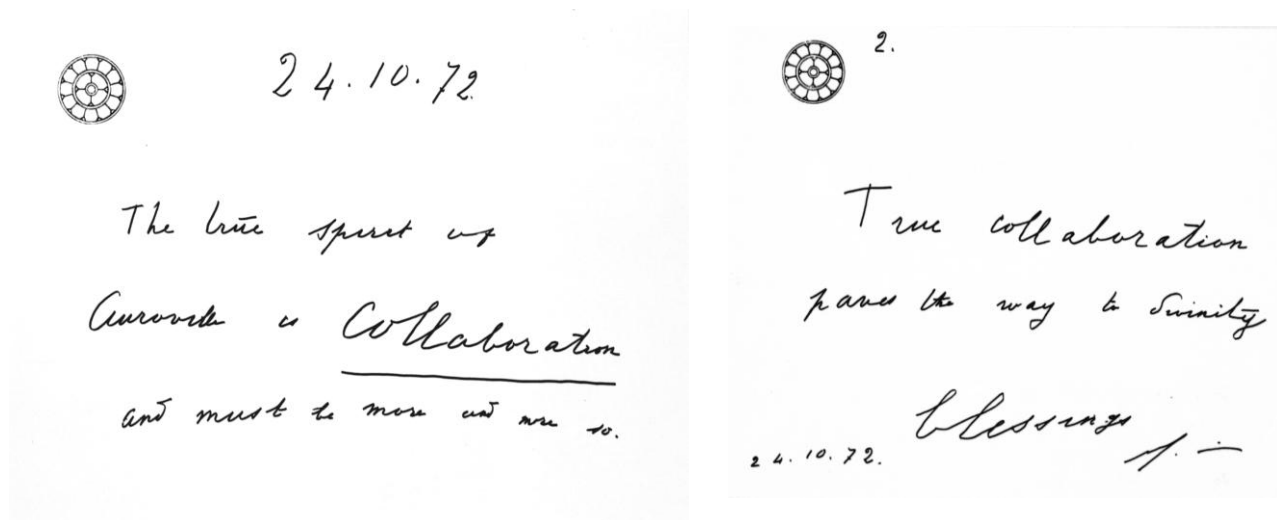 24.10.72.
The true spirit of
Auroville is Collaboration
and must be more and more so.
2.
True collaboration
paves the way to divinity
blessings
24.10.72.